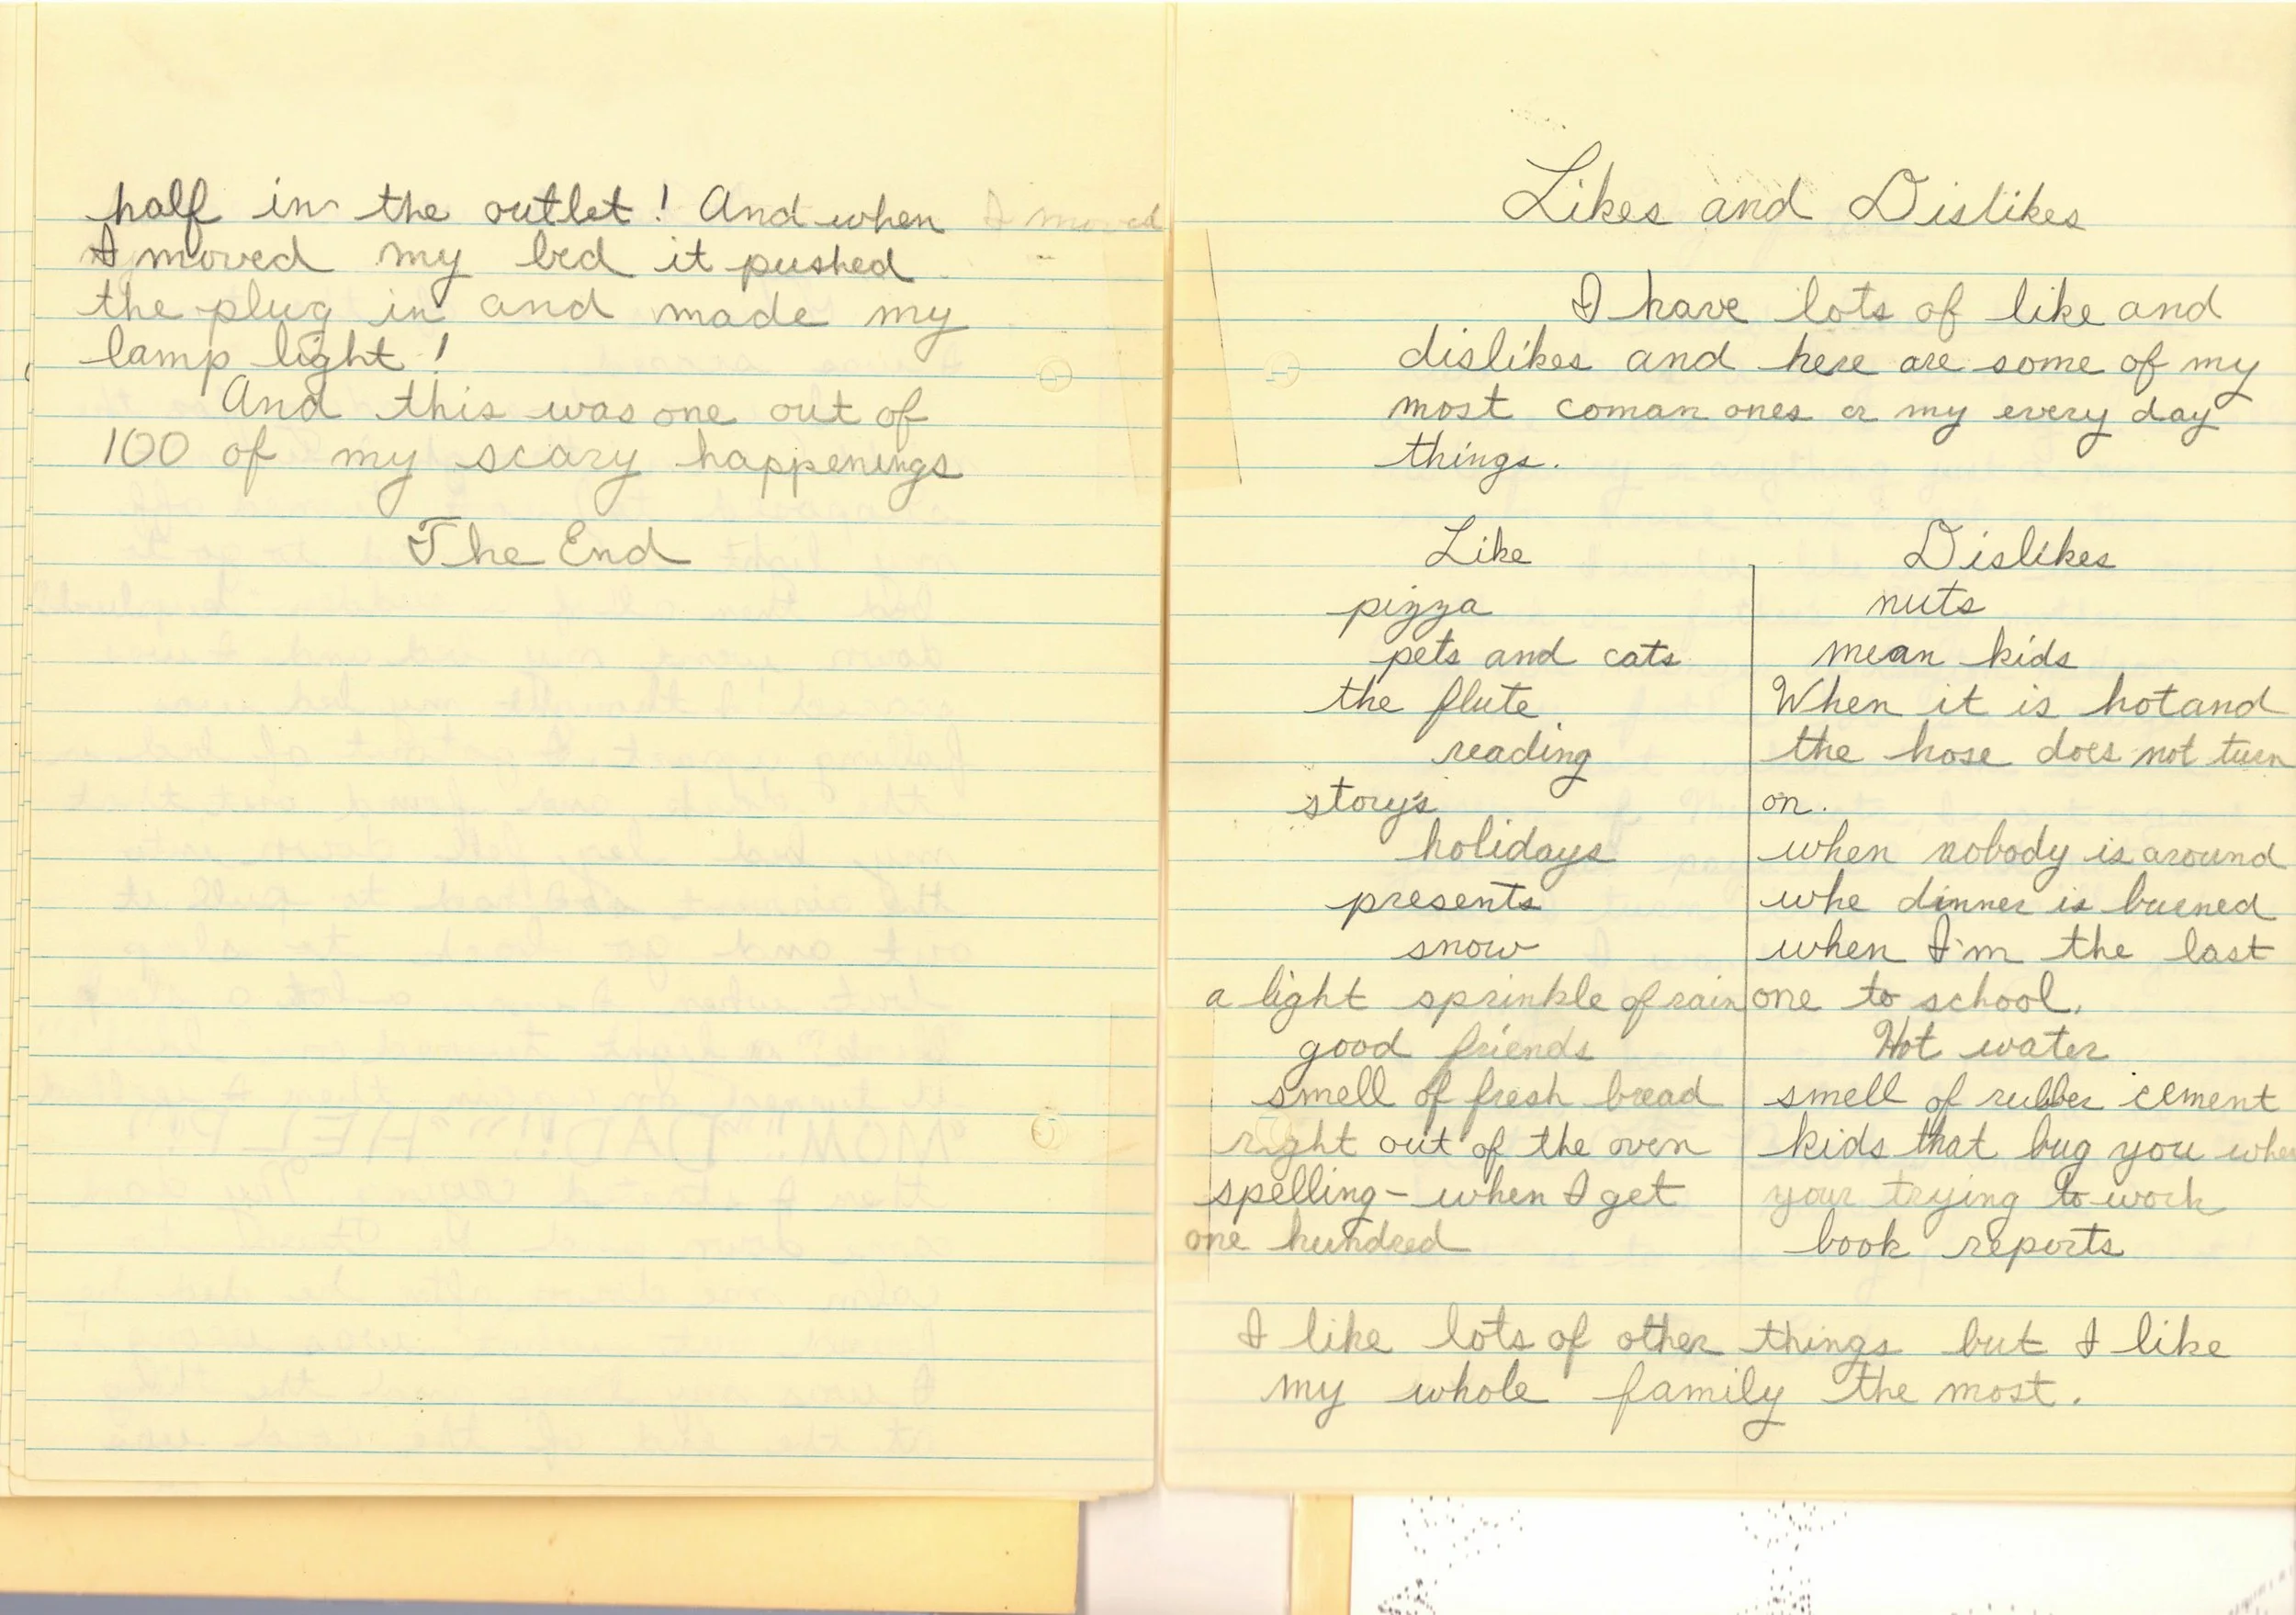 half in the outlet! And when I moved
I moved my bed it pushed
the plug in and made my
lamp light!
And this was one out of
100 of my scary happenings
The End
Likes and Dislikes
I have lots of like and
dislikes and here are some of my
most coman ones or my every day
things.
Like
pizza
pets and cats
the flute
reading
story's
holidays
presents
snow
a light sprinkle of rain
good friends
smell of fresh bread
right out of the oven
spelling - when I get
one hundred
Dislikes
nuts
mean kids
When it is hot and
the hose does not turn
on.
when nobody is around
whe dinner is burned
when I'm the last
one to school.
Hot water
smell of rubber cement
kids that bug you when
your trying to work
book reports
I like lots of other things but I like
my whole family the most.